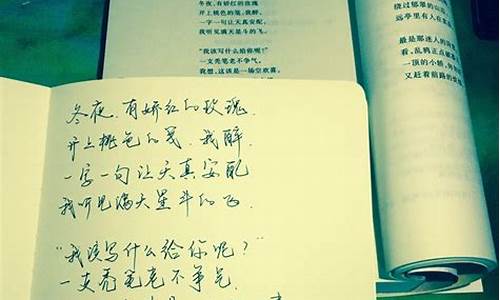 冬夜,有娇红的玫瑰
开上桃色的笺,我醉,
一字一句让天真安配,
我听见满天星斗的飞。
“我该写什么给你呢?”
一支秃笔老不争气。
我想,这该是一场空欢喜,
远亭里有人在
最是那迷人的
看,乱鸦正点
一顶的小轿,
又赶着前路的
冬夜,有娇红的玫瑰
开上桃色的笺,我醉,
一字一句让天真安配
我听见满天星斗的飞.
“我该写什么给你呢?”
一支秃笔老不争气.